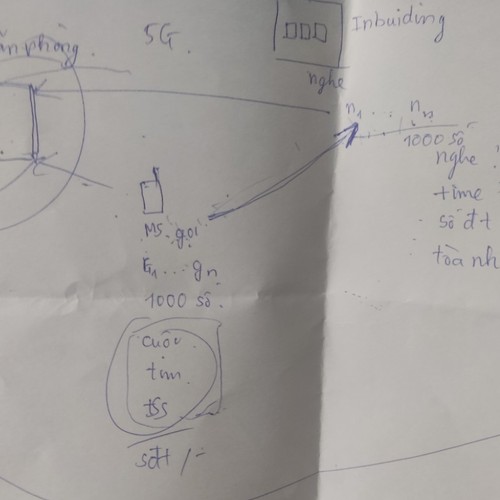 ăn phòng.
5G.
Inbuiding
nghe
n1 ... nn
1000 số
nghe
time
số đt
tòa nh
MS. gọi
... gn
1000 số.
cuộc
tim
sđt /